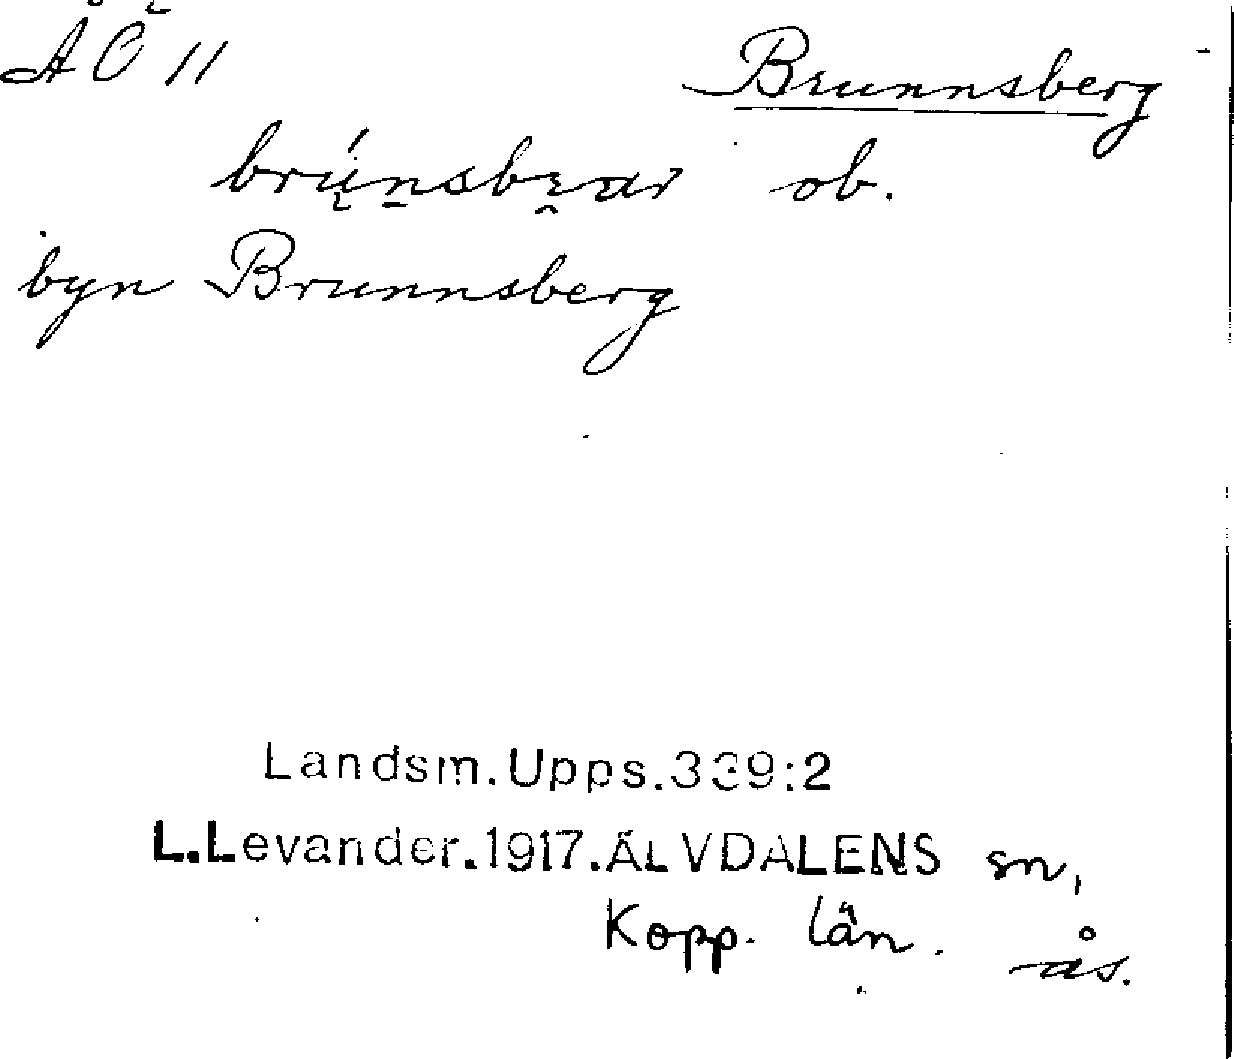 ÅÖ 11
Brunnsberg
brúnsbɛar ob.
byn Brunnsberg
Landsm.Upps.339:2
L.Levander.1917.ÄLVDALENS sn,
Kopp. län.
ås.